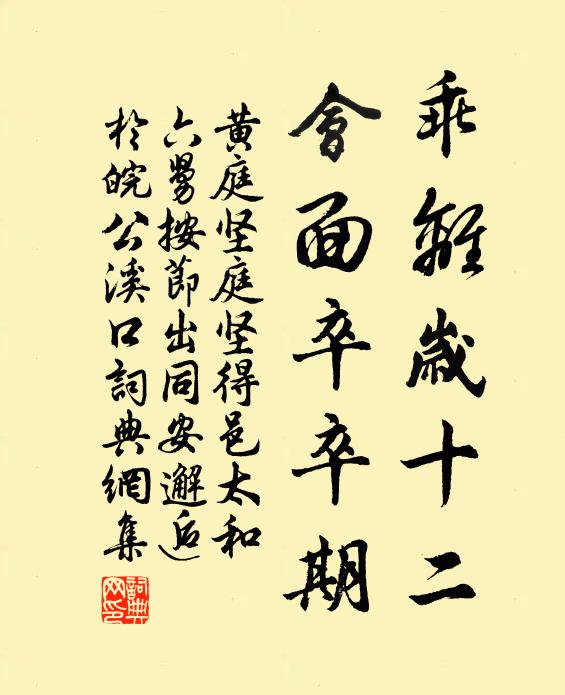 乖離歲十二
會面卒卒期
黃庭坚庭坚得邑太和
六舅按節出同安邂逅
於皖公溪口詞典網集